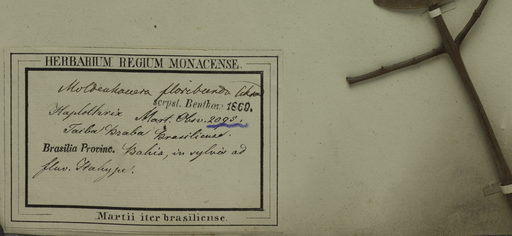 HERBARIUM REGIUM MONACENSE.
Moldenhauera floribunda Schrad
scrpst. Benthm. 1869.
Haplothrix Mart. Obsv. 2093.
Brasiliense.
Brasilia Provinc. Bahia, in sylvis ad
fluv. Itahype.
Martii iter brasiliense.